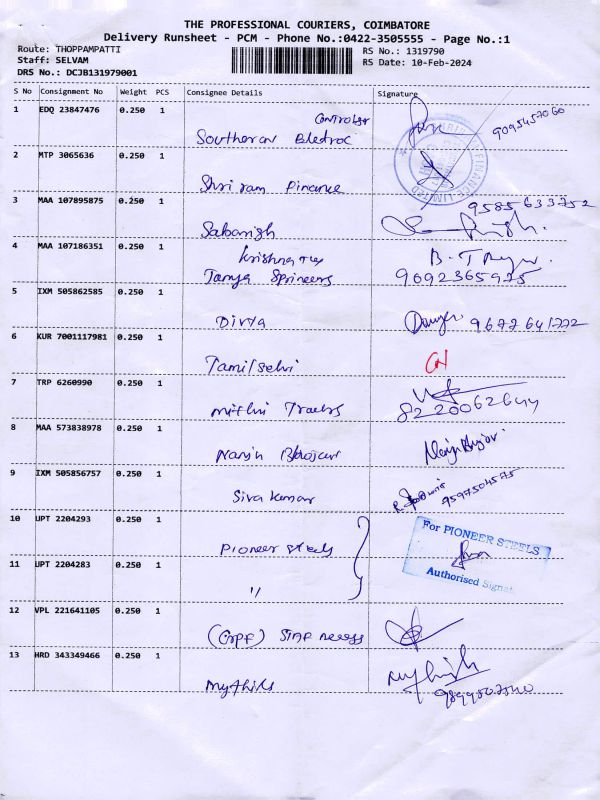 THE PROFESSIONAL COURIERS, COIMBATORE
Delivery Runsheet - PCM - Phone No.:0422-3505555 - Page No.:1
Route: THOPPAMPATTI RS No.: 1319790
Staff: SELVAM RS Date: 10-Feb-2024
DRS No.: DCJB131979001
S No Consignment No Weight PCS Consignee Details Signature
1 EDQ 23847476 0.250 1
Southeran
2 MTP 3065636 0.250 1
Shriram Finance
FINANCE LIMITED
3 MAA 107895875 0.250 1 9585633752
Sabarish
4 MAA 107186351 0.250 1
Tanya 9092365925
5 IXM 505862585 0.250 1
Divya 9677641772
6 KUR 7001117981 0.250 1
Tamilselvi
7 TRP 6260990 0.250 1
8220062644
8 MAA 573838978 0.250 1
9 IXM 505856757 0.250 1
Sivakumar 9597504575
10 UPT 2204293 0.250 1
Pioneer steels
For PIONEER STEELS
11 UPT 2204283 0.250 1
Authorised Signat.
"
12 VPL 221641105 0.250 1
13 HRD 343349466 0.250 1